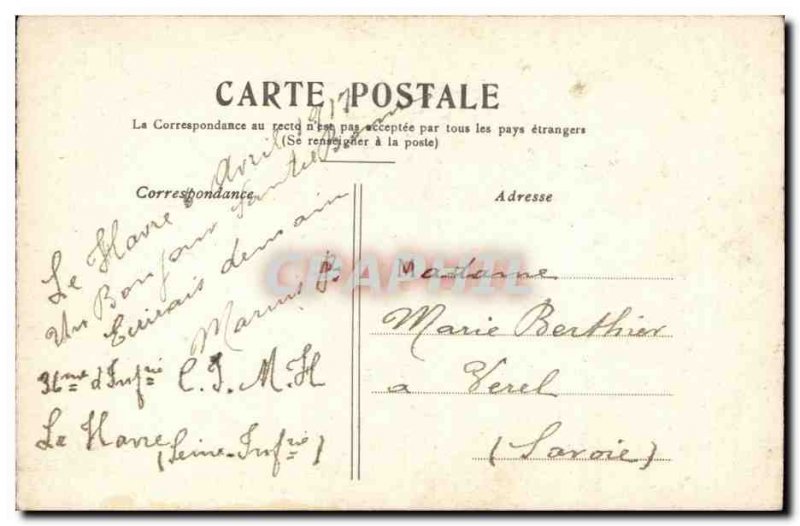 CARTE POSTALE
La Correspondance au recto n'est pas acceptée par tous les pays étrangers
(Se renseigner à la poste)
Correspondance
Le Havre Avril 1917
Un Bonjour Santée Bonne
Ecrirais demain
Marius B.
36me d'Infrie C.I.M.H
Le Havre
(Seine-Infrie)
Adresse
Madame
Marie Berthier
a Verel
(Savoie)
CPAPHIL